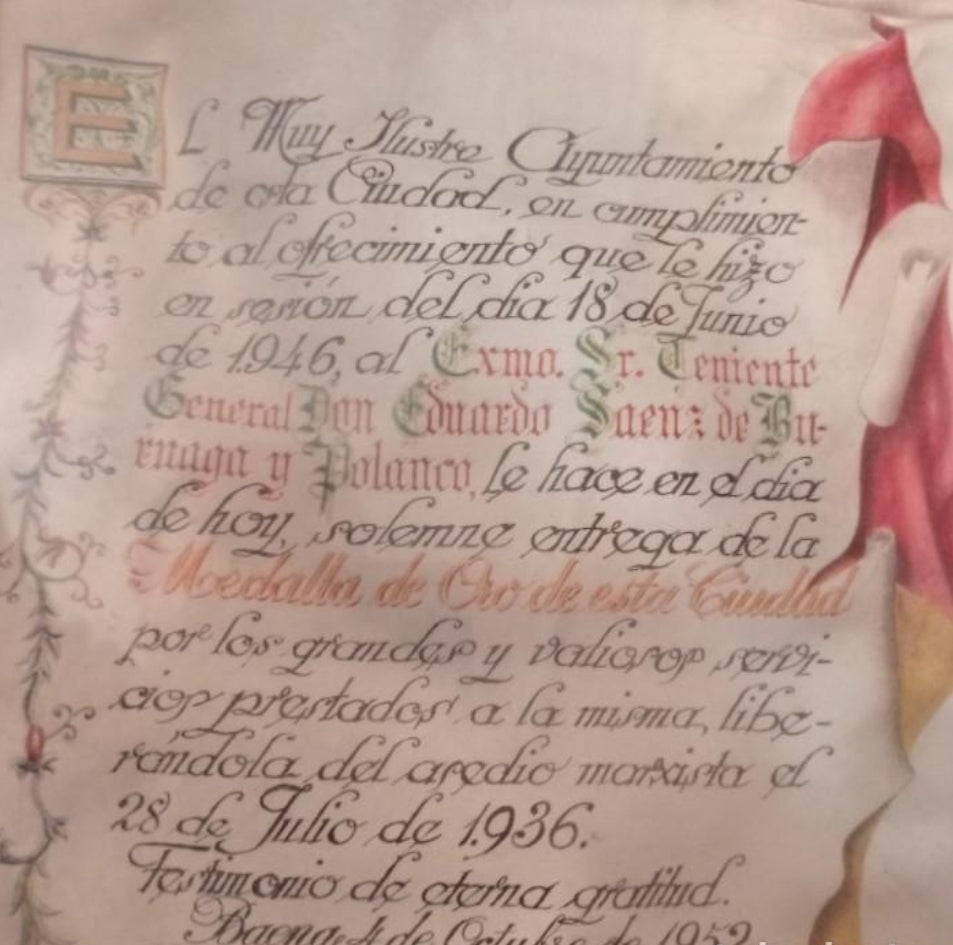 EL Muy Ilustre Ayuntamiento
de esta Ciudad, en cumplimien-
to al ofrecimiento que le hizo
en sesión del dia 18 de Junio
de 1.946, al Exmo. Sr. Teniente
General Don Eduardo Saenz de Bu-
ruaga y Polanco, le hace en el dia
de hoy, solemne entrega de la
Medalla de Oro de esta Ciudad
por los grandes y valiosos servi-
cios prestados a la misma, libe-
rándola del asedio marxista el
28 de Julio de 1.936.
Testimonio de eterna gratitud.
Baena, 4 de Octubre de 1952